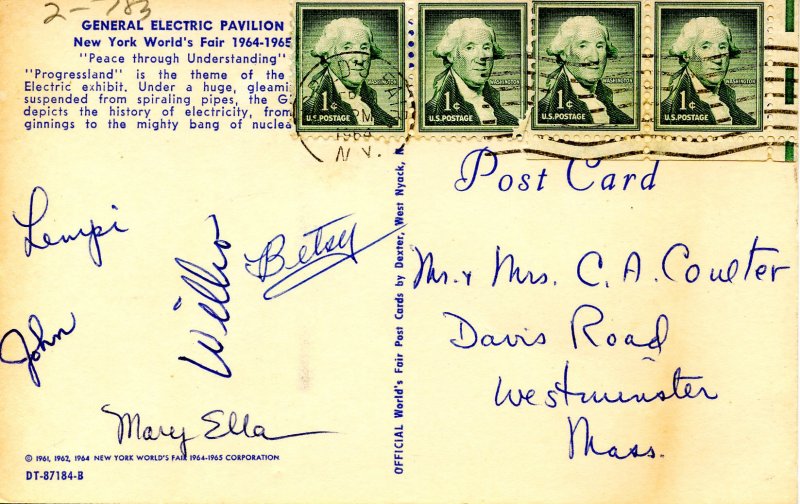 2-783
GENERAL ELECTRIC PAVILION
New York World's Fair 1964-1965
"Peace through Understanding"
"Progressland" is the theme of the
Electric exhibit. Under a huge, gleami
suspended from spiraling pipes, the G
depicts the history of electricity, from
ginnings to the mighty bang of nuclea
WASHINGTON
1¢
U.S. POSTAGE
WASHINGTON
1¢
U.S. POSTAGE
WASHINGTON
1¢
U.S. POSTAGE
WASHINGTON
1¢
U.S. POSTAGE
PM
1964
N.Y.
Lempi
Willio
Betsy
John
Mary Ella
© 1961, 1962, 1964 NEW YORK WORLD'S FAIR 1964-1965 CORPORATION
DT-87184-B
OFFICIAL World's Fair Post Cards by Dexter, West Nyack, N
Post Card
Mr. & Mrs. C. A. Coulter
Davis Road
Westminster
Mass.